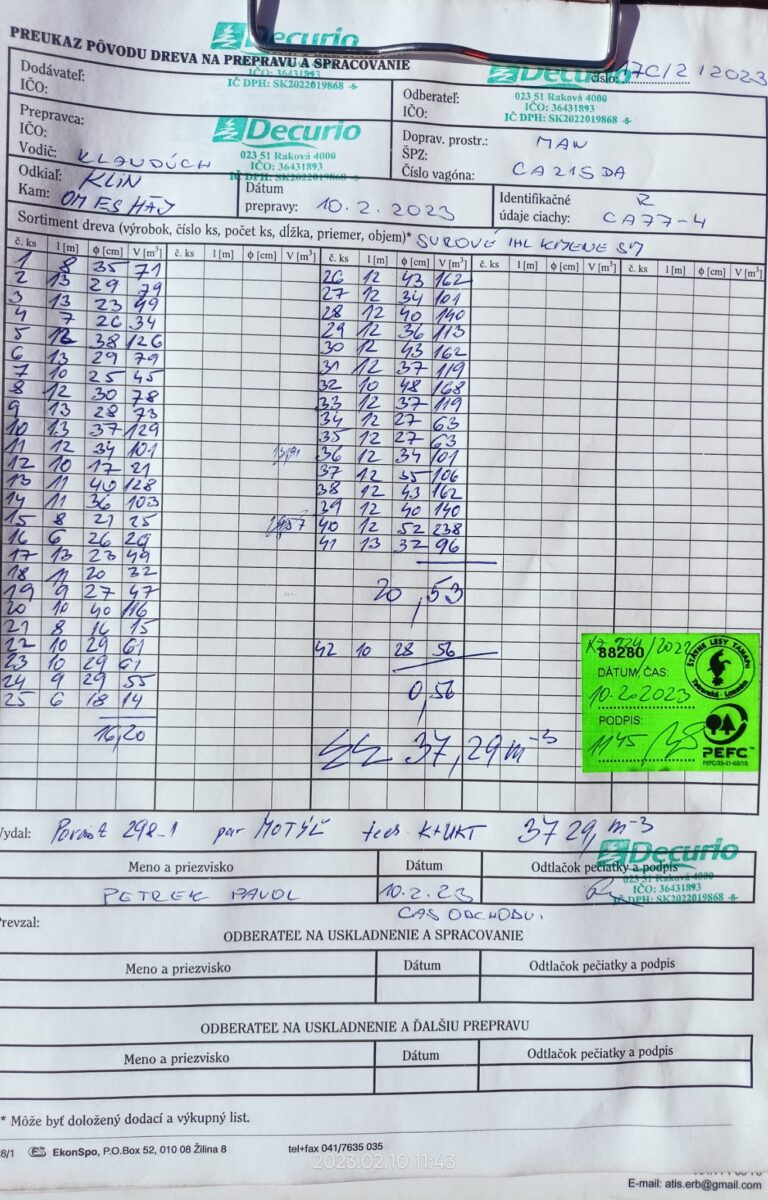 Decurio
PREUKAZ PÔVODU DREVA NA PREPRAVU A SPRACOVANIE
IČO: 36431893
IČ DPH: SK2022019868 -6-
Decurio
číslo: 17C/2 / 2023
Dodávateľ:
IČO:
Odberateľ:
IČO:
023 51 Raková 4000
IČO: 36431893
IČ DPH: SK2022019868 -6-
Prepravca:
IČO:
Vodič: KLAUDÚCH
Decurio
023 51 Raková 4000
IČO: 36431893
IČ DPH: SK2022019868 -6-
Doprav. prostr.: MAN
ŠPZ:
Číslo vagóna: CA215DA
Odkiaľ: KLIN
Kam: OM ES HÁJ
Dátum
prepravy: 10.2.2023
Identifikačné
údaje ciachy: CA77-4
Sortiment dreva (výrobok, číslo ks, počet ks, dĺžka, priemer, objem)* SUROVÉ IHL KMENE SM
č. ks l [m] ϕ [cm] V [m³] č. ks l [m] ϕ [cm] V [m³] č. ks l [m] ϕ [cm] V [m³] č. ks l [m] ϕ [cm] V [m³] č. ks l [m] ϕ [cm] V [m³]
1 8 35 71 26 12 43 162
2 13 29 79 27 12 34 101
3 13 23 49 28 12 40 140
4 7 26 34 29 12 36 113
5 12 38 126 30 12 43 162
6 13 29 79 31 12 37 119
7 10 25 45 32 10 48 168
8 12 30 78 33 12 37 119
9 13 28 73 34 12 27 63
10 13 37 129 35 12 27 63
11 12 34 101 36 12 34 101
12 10 17 21 37 12 35 106
13 11 40 128 38 12 43 162
14 11 36 103 39 12 40 140
15 8 21 25 40 12 52 238
16 6 26 29 41 13 32 96
17 13 23 49
18 11 20 32
19 9 27 47 20,53
20 10 40 116
21 8 16 15
22 10 29 61 42 10 28 56
23 10 29 61
24 9 29 55 0,56
25 6 18 14
16,20
37,29 m-3
88280
DÁTUM, ČAS:
10.2.2023
PODPIS:
1145
ŠTÁTNE LESY TANAPU
Tatranská Lomnica
PEFC™
PEFC/23-21-03/10
Vydal: Porast 298-1 par MOTÝĽ 37 29, m-3
Decurio
Meno a priezvisko Dátum Odtlačok pečiatky a podpis
023 51 Raková 4000
IČO: 36431893
IČ DPH: SK2022019868 -6-
PETREK PAVOL 10.2.23
Prevzal: ČAS ODCHODU.
ODBERATEĽ NA USKLADNENIE A SPRACOVANIE
Meno a priezvisko Dátum Odtlačok pečiatky a podpis
ODBERATEĽ NA USKLADNENIE A ĎALŠIU PREPRAVU
Meno a priezvisko Dátum Odtlačok pečiatky a podpis
* Môže byť doložený dodací a výkupný list.
8/1 ES EkonSpo, P.O.Box 52, 010 08 Žilina 8 tel+fax 041/7635 035
2023.02.10 11:43
E-mail: atis.erb@gmail.com